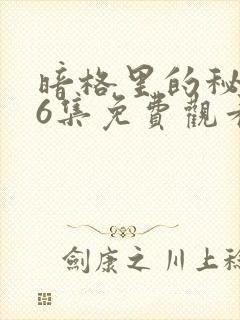 暗格里的秘
6集免費觀看
劍康之 川上稔